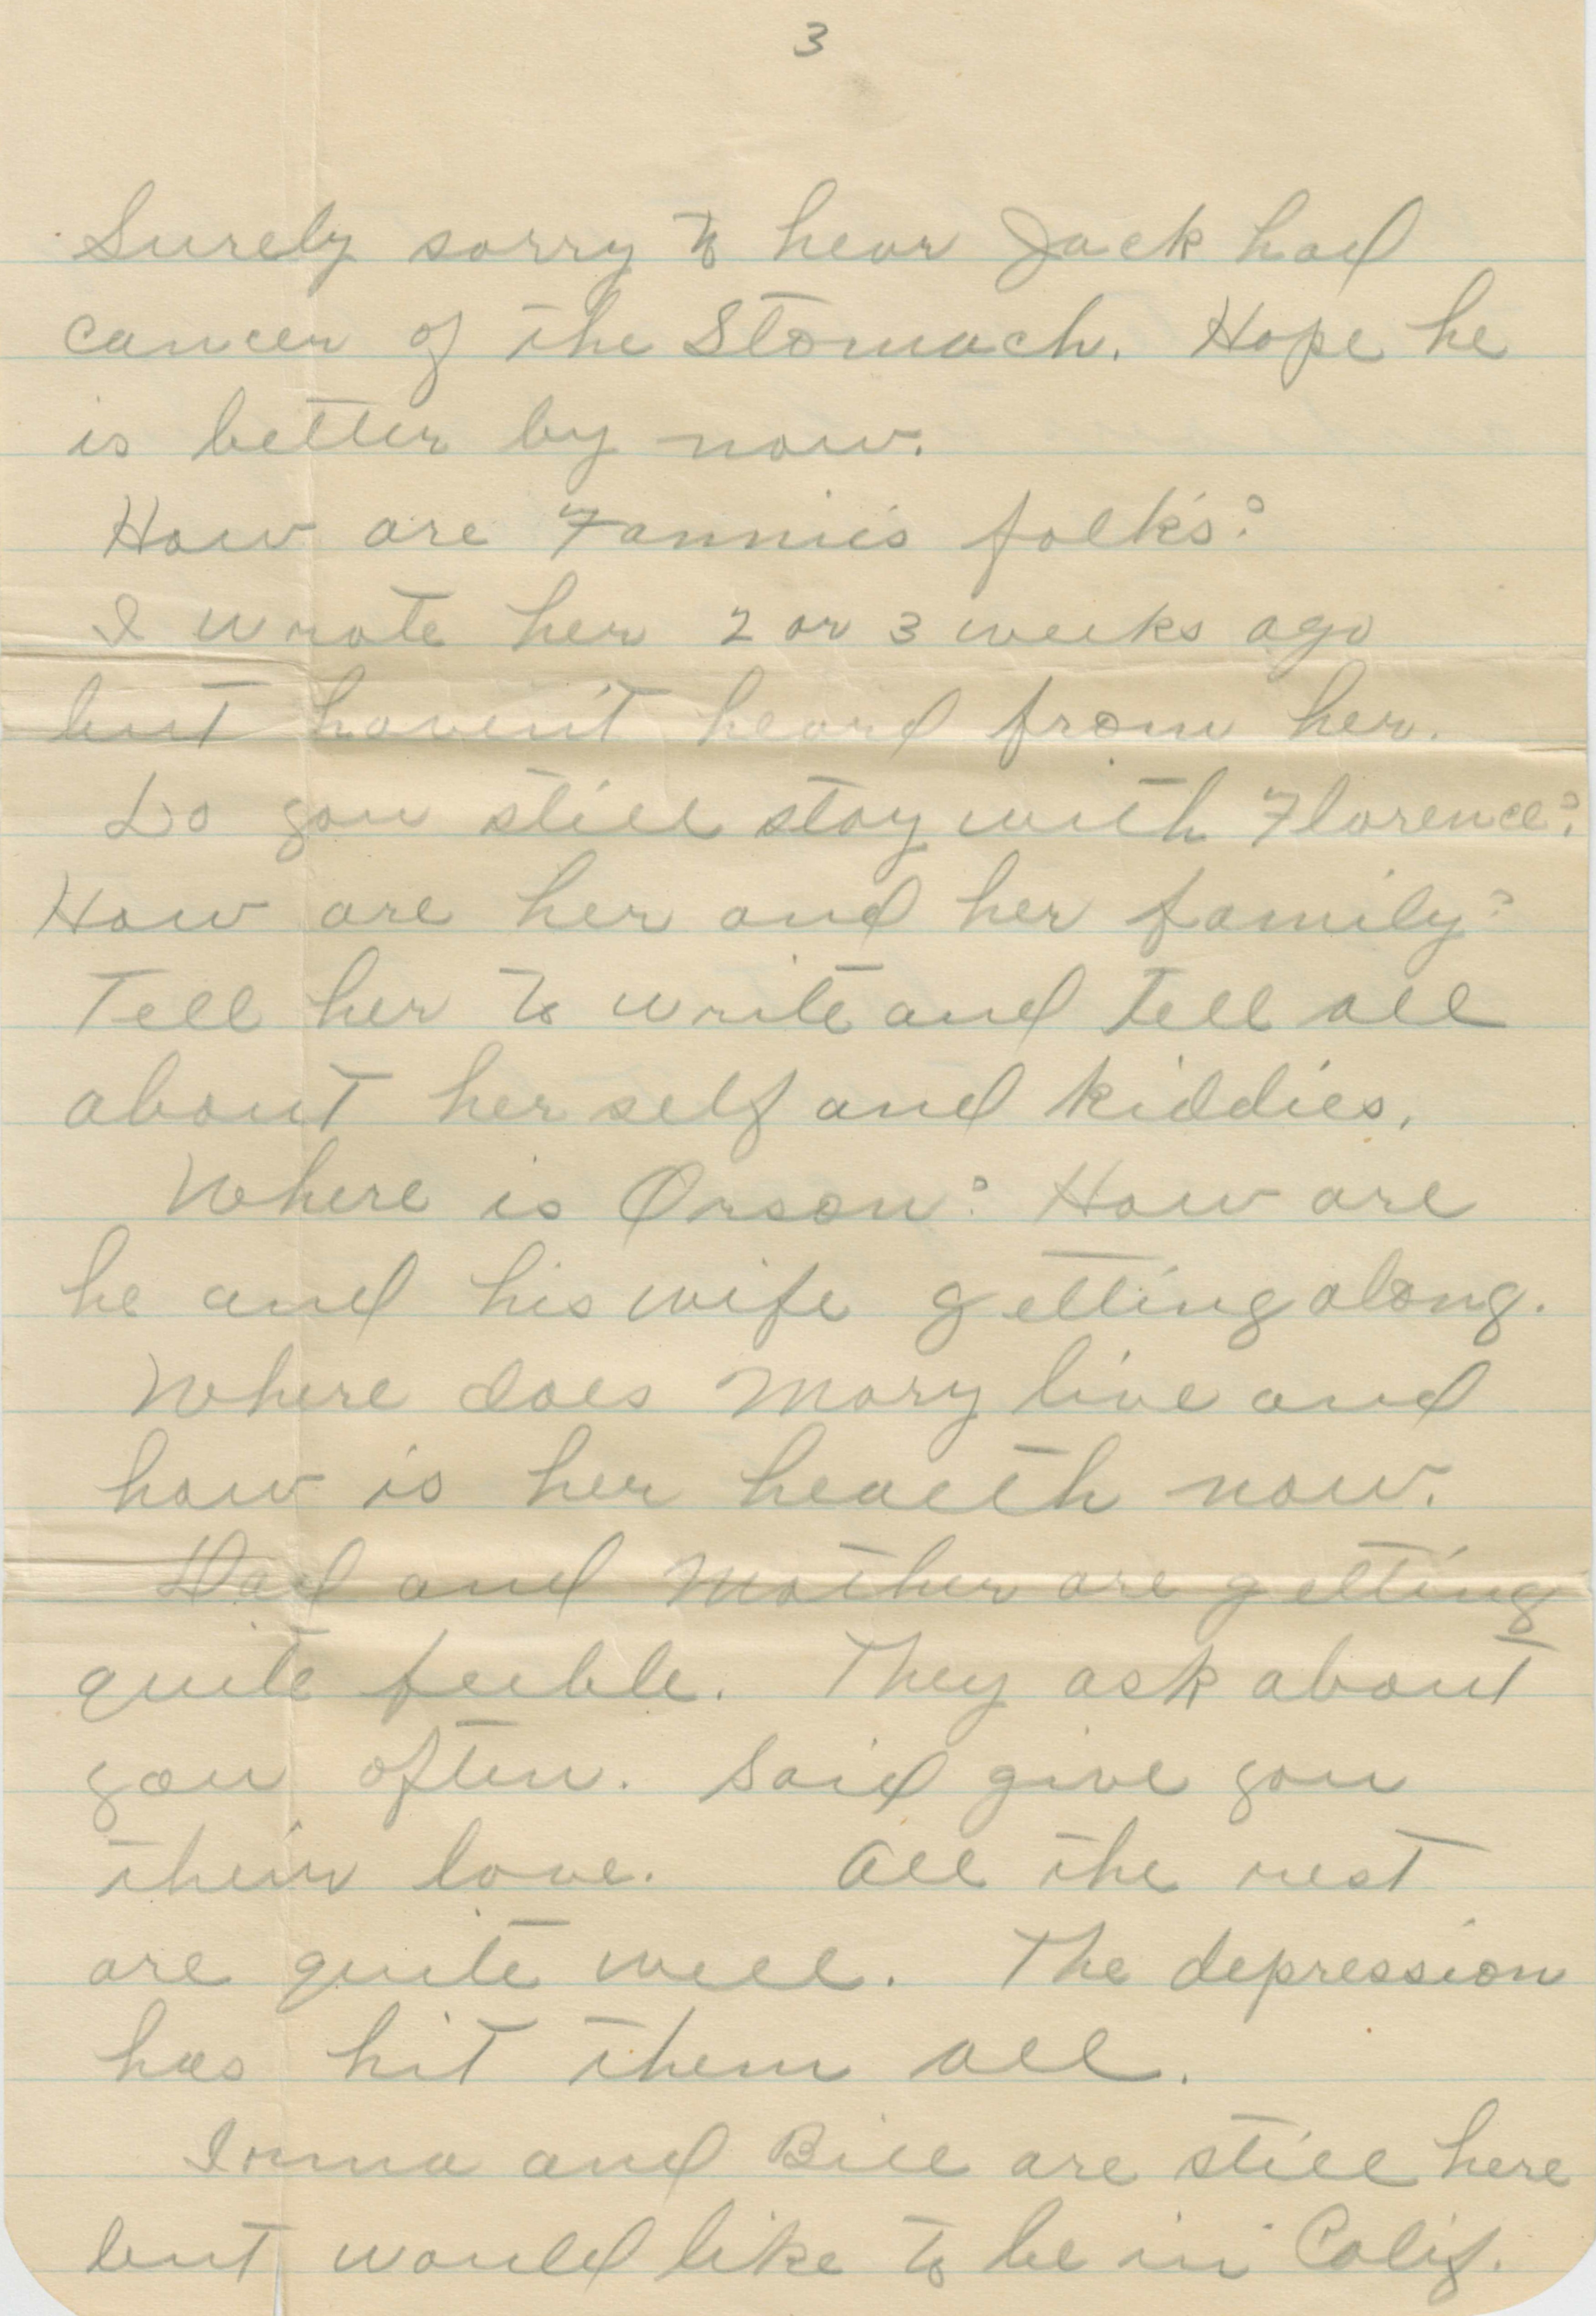 3
Surely sorry to hear Jack had
cancer of the Stomach. Hope he
is better by now.
How are Fannie's folk's?
I wrote her 2 or 3 weeks ago
but haven't heard from her.
Do you still stay with Florence?
How are her and her family?
Tell her to write and tell all
about her self and kiddies.
Where is Orson? How are
he and his wife getting along.
Where does Mary live and
how is her health now.
Dad and Mother are getting
quite feeble. They ask about
you often. Said give you
their love. All the rest
are quite well. The depression
has hit them all.
Irma and Bill are still here
but would like to be in Calif.